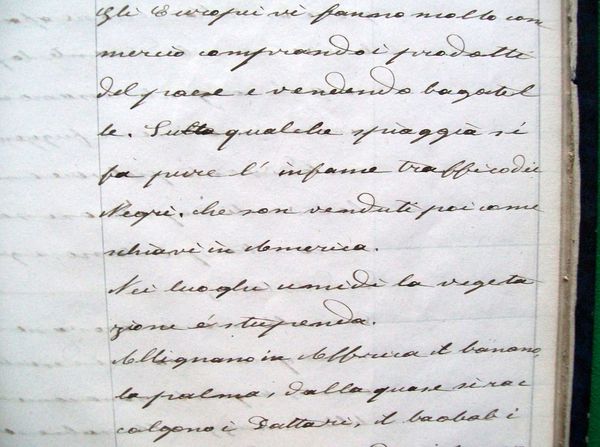 Gli Europei vi fanno molto com
mercio comprando i prodotti
del paese e vendendo bagatel
le. Sulla qualche spiaggia si
fa pure l' infame traffico dei
Negri. che son venduti poi come
schiavi in America.
Nei luoghi umidi la vegeta
zione é stupenda.
Allignano in Affrica il banano,
la palma, dalla quase si rac
colgono i Dattari, il baobab i